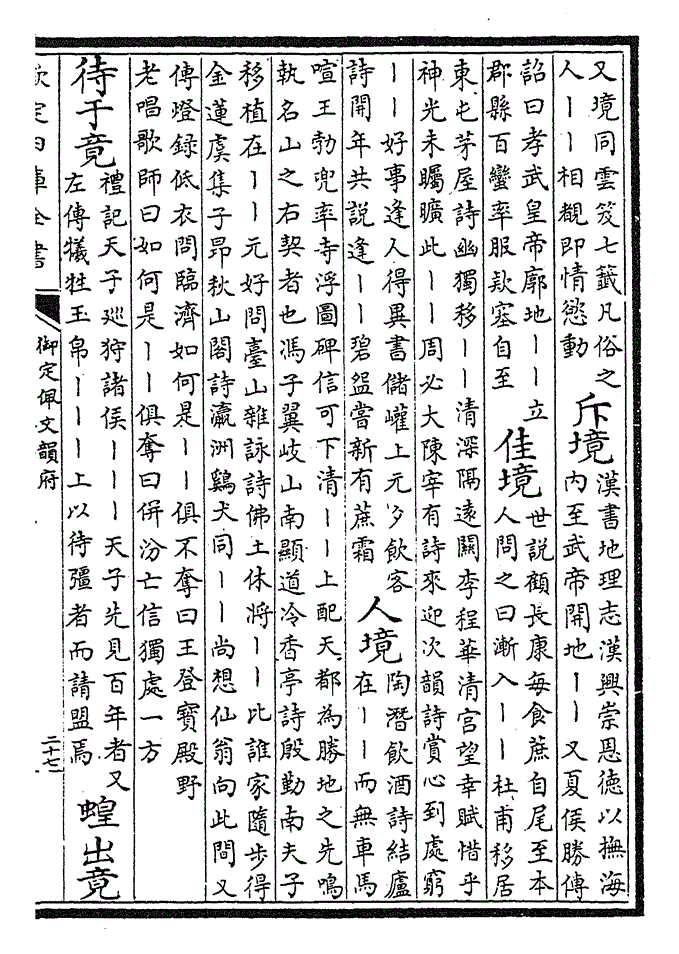 又境同雲笈七籤凡俗之
人丨丨相覩即情慾動
斥境
漢書地理志漢興崇恩德以撫海
内至武帝開地丨丨又夏侯勝傳
詔曰孝武皇帝廓地丨丨立
郡縣百蠻率服款塞自至
佳境
世説顧長康每食蔗自尾至本
人問之曰漸入丨丨杜甫移居
東屯茅屋詩幽獨移丨丨清深隔遠關李程華清宮望幸賦惜乎
神光未矚曠此丨丨周必大陳宰有詩來迎次韻詩賞心到處窮
丨丨好事逢人得異書儲巏上元夕飲客
詩開年共説逢丨丨碧盌嘗新有蔗霜
人境
陶潛飲酒詩結廬
在丨丨而無車馬
喧王勃兜率寺浮圖碑信可下清丨丨上配天都為勝地之先鳴
執名山之右契者也馮子翼岐山南顯道冷香亭詩殷勤南夫子
移植在丨丨元好問臺山雜詠詩佛土休將丨丨比誰家隨步得
金蓮虞集子昂秋山閣詩瀛洲鷄犬同丨丨尚想仙翁向此間又
傳燈録低衣問臨濟如何是丨丨俱不奪曰王登寶殿野
老唱歌師曰如何是丨丨俱奪曰併汾亡信獨處一方
待于竟
禮記天子廵狩諸侯丨丨丨天子先見百年者又
左傳犧牲玉帛丨丨丨上以待彊者而請盟焉
蝗出竟
欽定四庫全書
御定佩文韻府
二十七